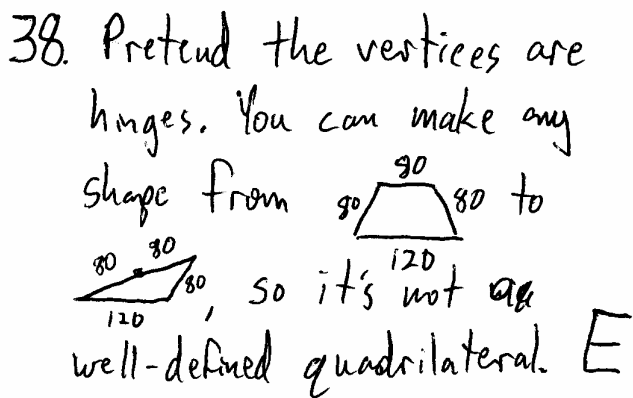 38. Pretend the vertices are
hinges. You can make any
shape from 80 80 80 120 to
80 80 80 120, so it's not a
well-defined quadrilateral. E